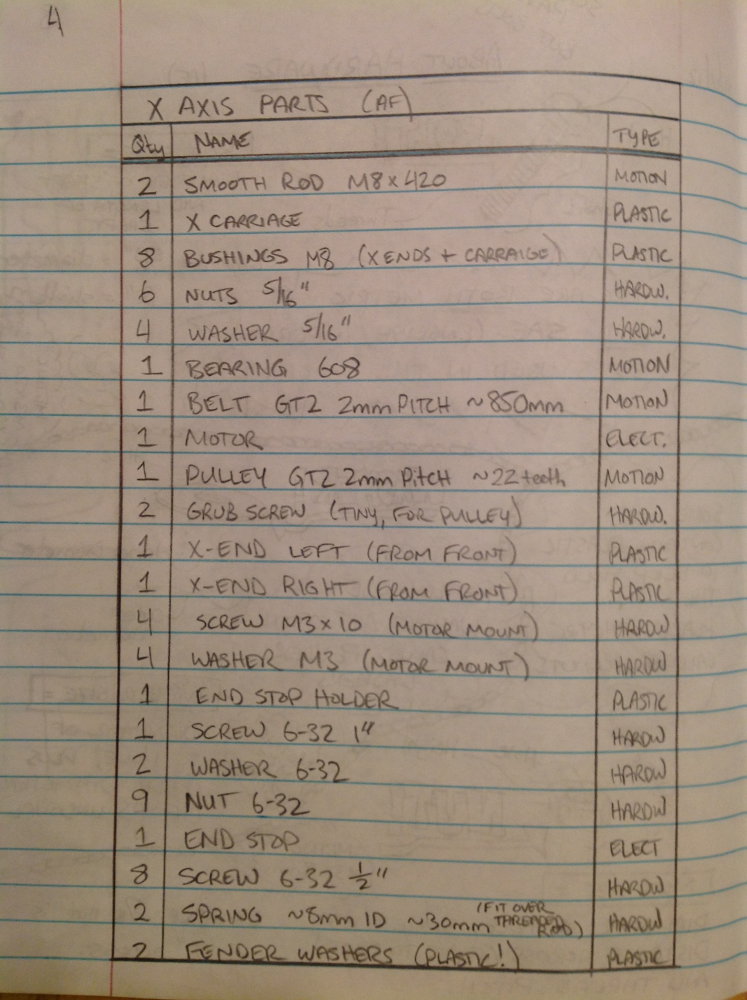 4
X AXIS PARTS (AF)
Qty NAME TYPE
2 SMOOTH ROD M8x420 MOTION
1 X CARRIAGE PLASTIC
8 BUSHINGS M8 (X ENDS + CARRAIGE) PLASTIC
6 NUTS 5/16" HARDW.
4 WASHER 5/16" HARDW.
1 BEARING 608 MOTION
1 BELT GT2 2mm PITCH ~850mm MOTION
1 MOTOR ELECT.
1 PULLEY GT2 2mm PitCH ~22 teeth MOTION
2 GRUB SCREW (TINY, FOR PULLEY) HARDW.
1 X-END LEFT (FROM FRONT) PLASTIC
1 X-END RIGHT (FROM FRONT) PLASTIC
4 SCREW M3x10 (MOTOR MOUNT) HARDW
4 WASHER M3 (MOTOR MOUNT) HARDW
1 END STOP HOLDER PLASTIC
1 SCREW 6-32 1" HARDW
2 WASHER 6-32 HARDW
9 NUT 6-32 HARDW
1 END STOP ELECT
8 SCREW 6-32 1/2" HARDW
2 SPRING ~8mm ID ~30mm (FIT OVER THREADED ROD) HARDW
2 FENDER WASHERS (PLASTIC!) PLASTIC